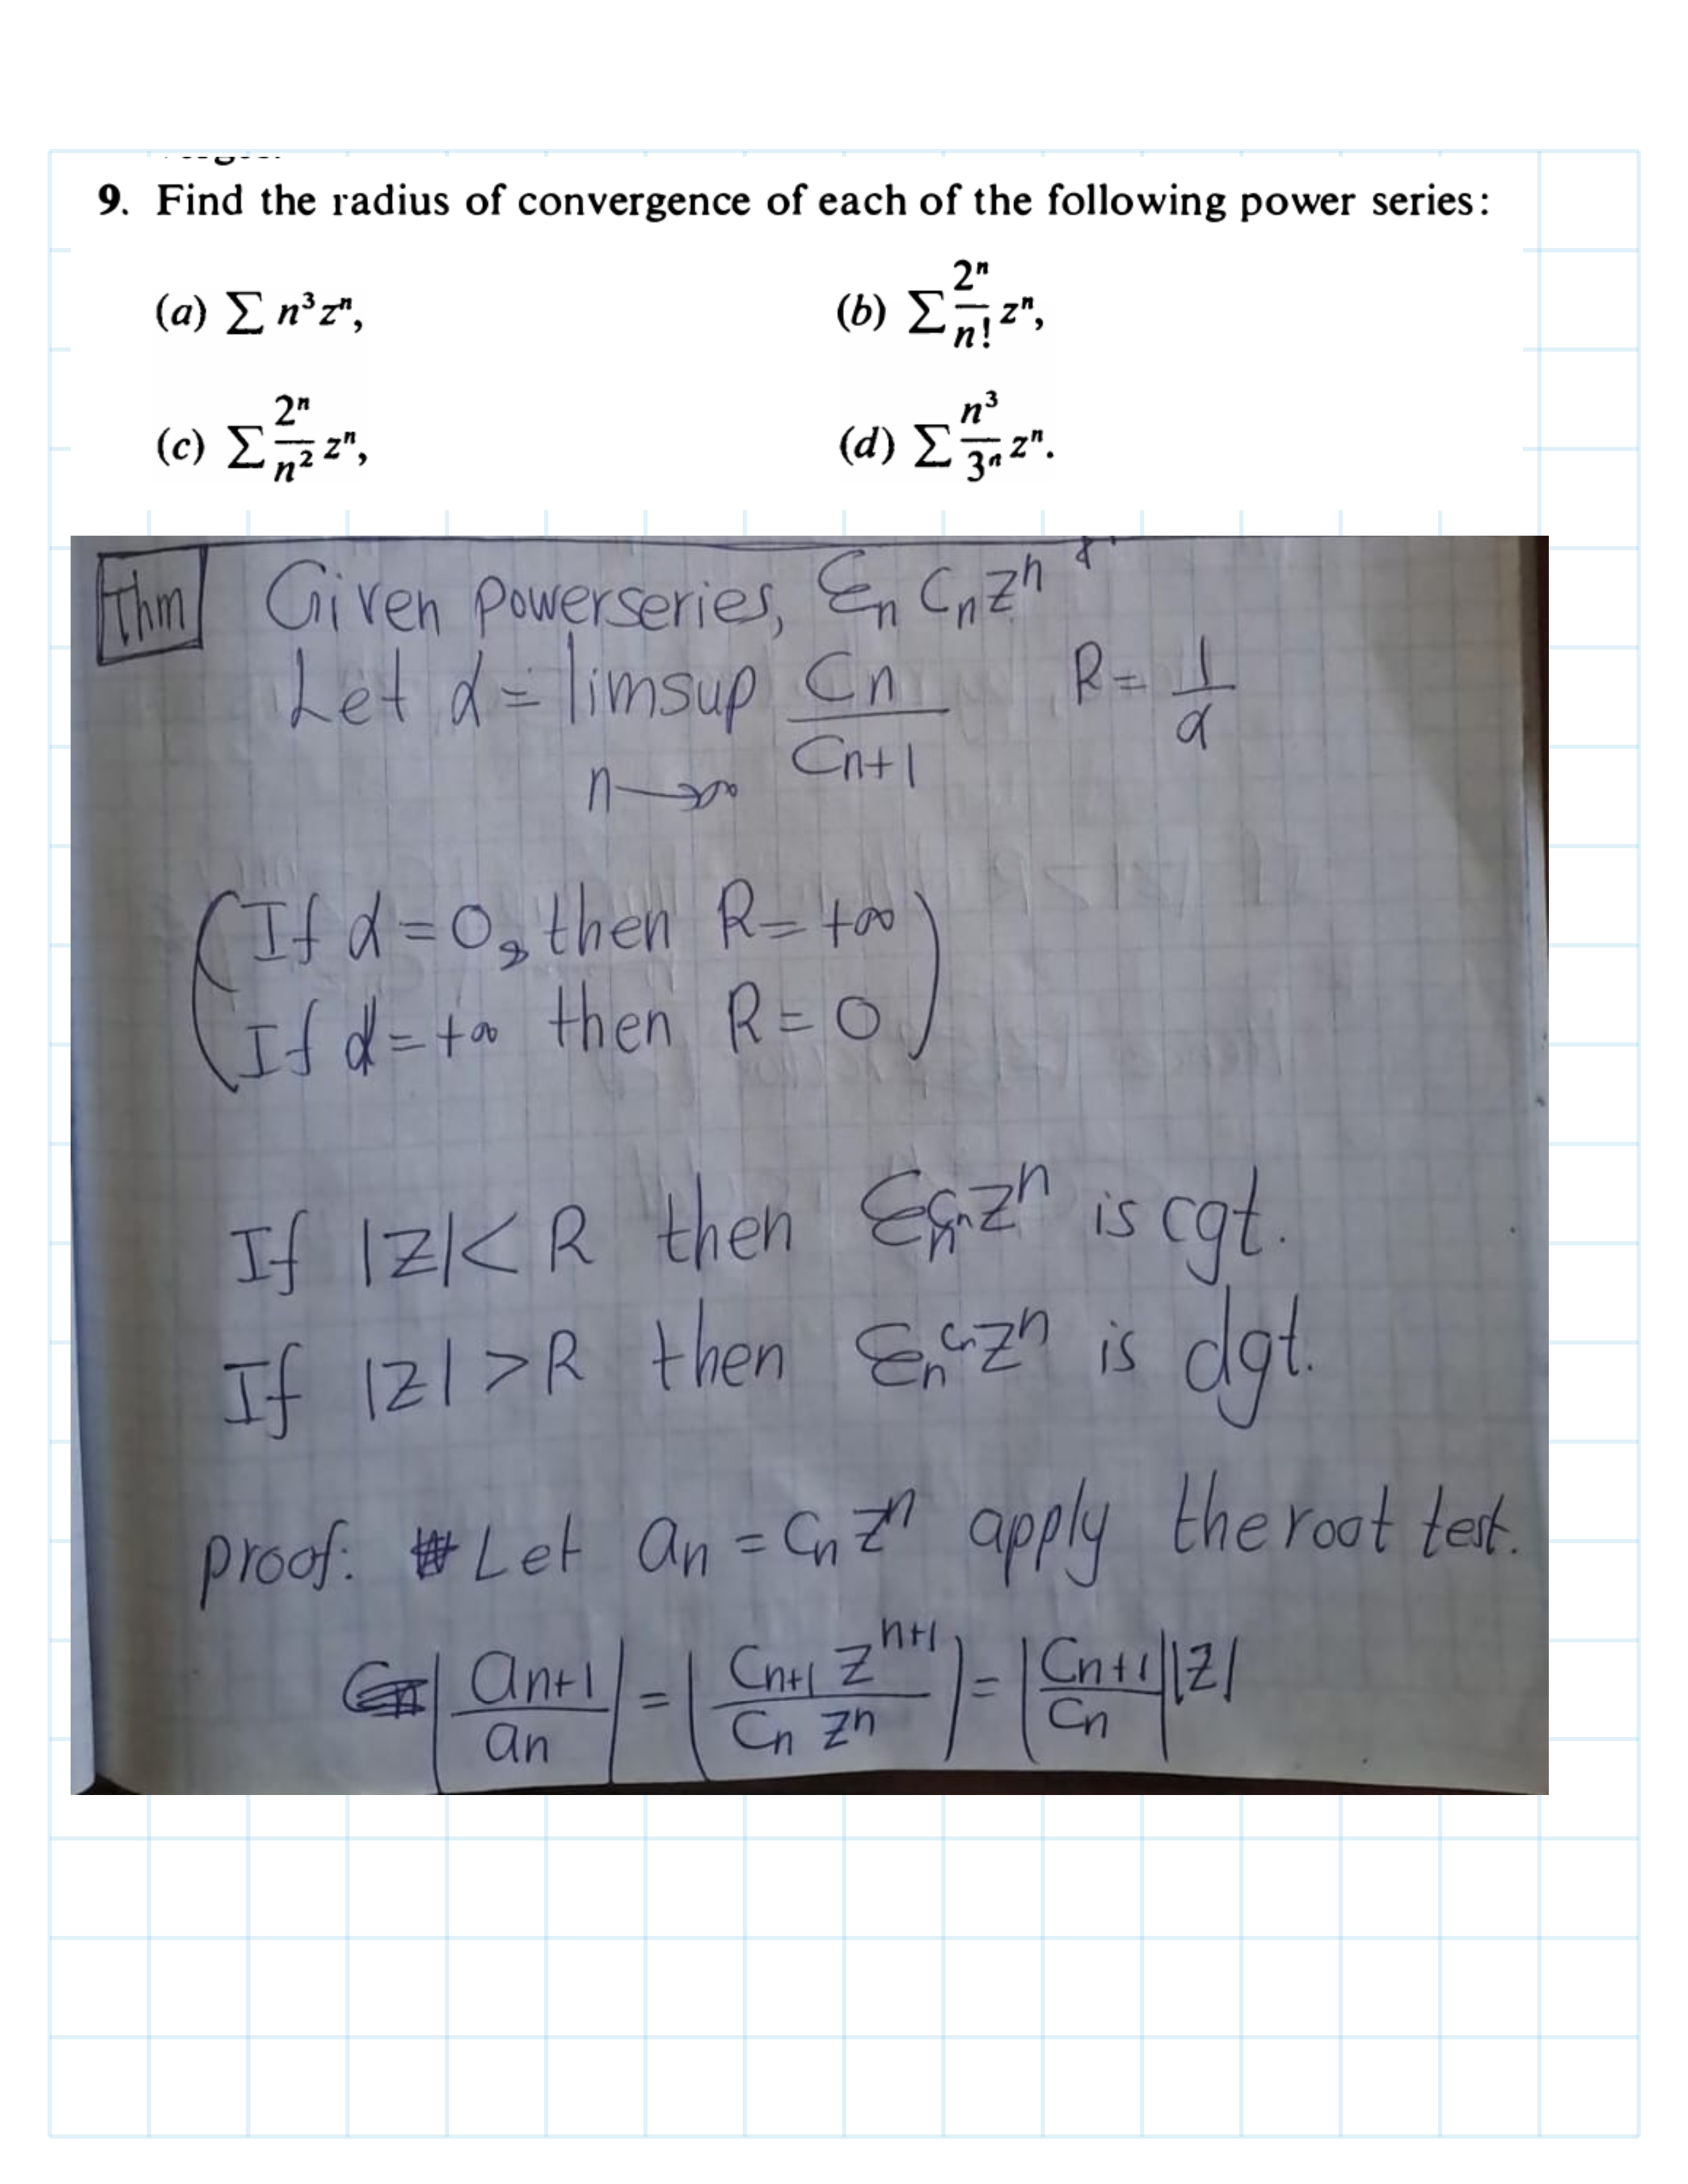 9. Find the radius of convergence of each of the following power series:
(a) ∑ n³zⁿ,
(b) ∑ 2ⁿ/n! zⁿ,
(c) ∑ 2ⁿ/n² zⁿ,
(d) ∑ n³/3ⁿ zⁿ.
Thm Given powerseries, Σₙ Cₙzⁿ
Let α = limsup Cₙ/Cₙ₊₁ R = 1/α
n→∞
(If α = 0, then R = +∞
If α = +∞ then R = 0)
If |z| < R then Σₙ cₙzⁿ is cgt.
If |z| > R then Σₙ cₙzⁿ is dgt.
proof: Let aₙ = cₙzⁿ apply the root test.
|aₙ₊₁/aₙ| = |Cₙ₊₁ zⁿ⁺¹/Cₙ zⁿ| = |Cₙ₊₁/Cₙ||z|